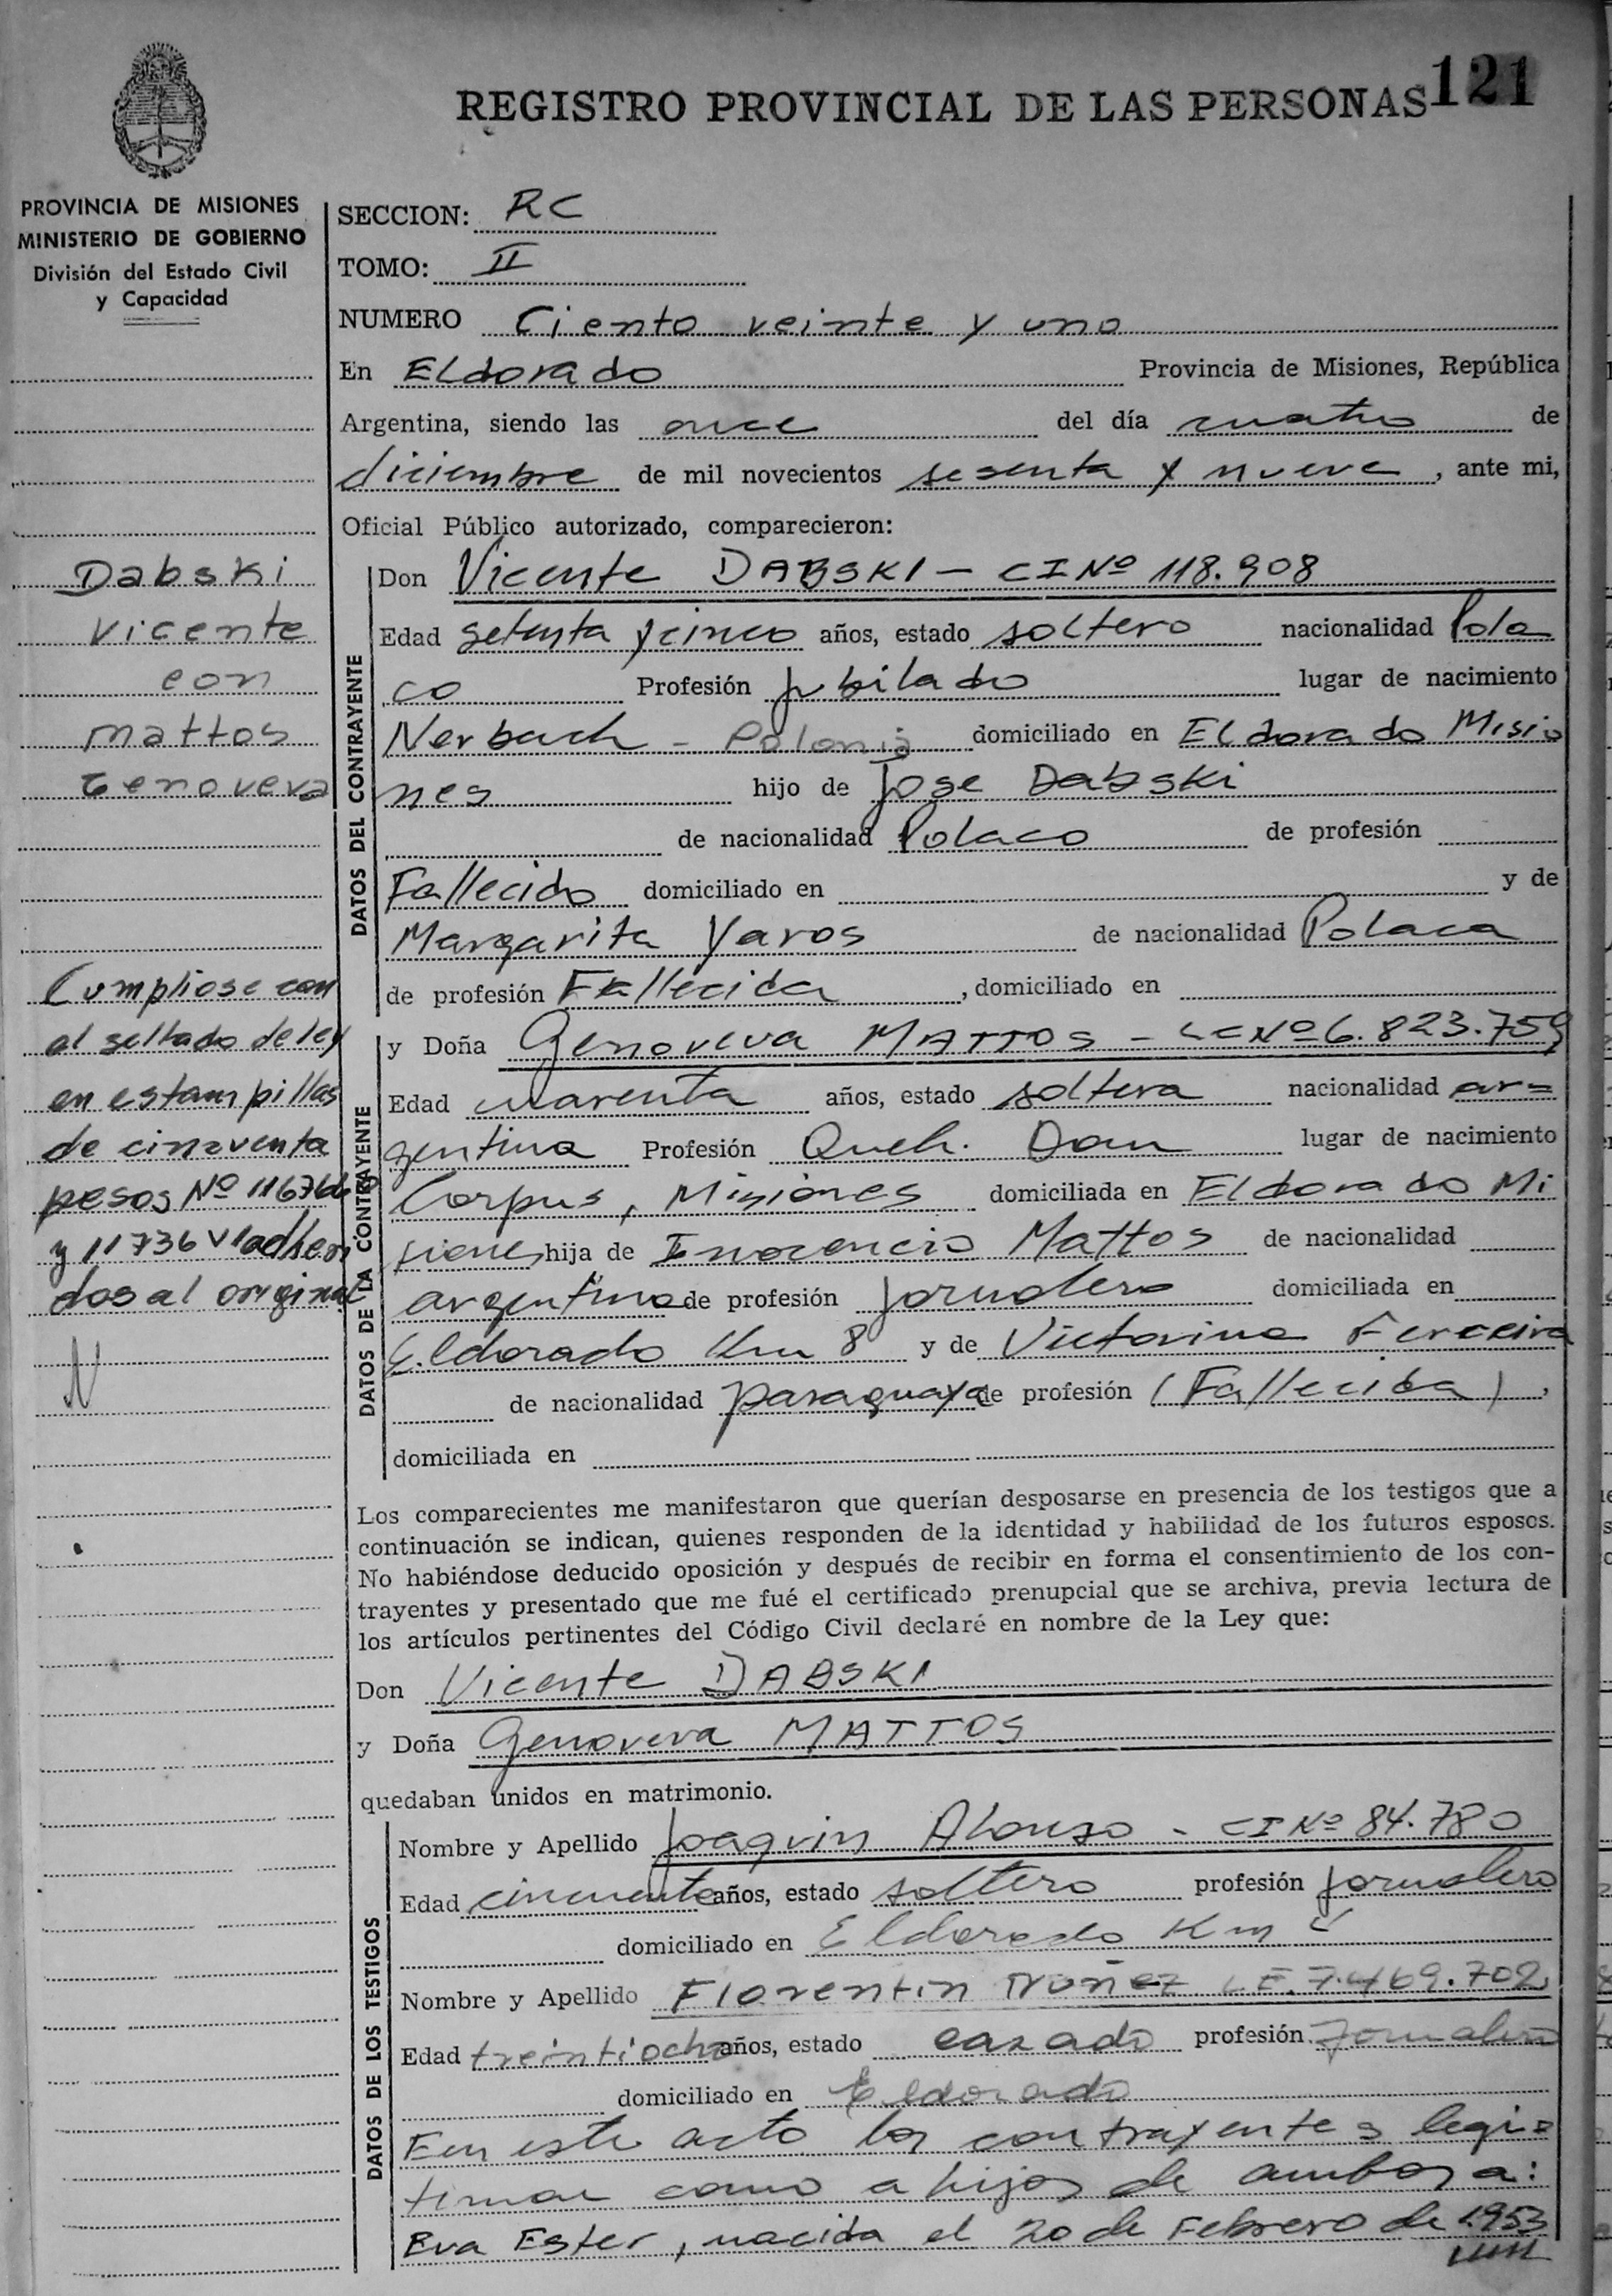 REGISTRO PROVINCIAL DE LAS PERSONAS 121
PROVINCIA DE MISIONES
MINISTERIO DE GOBIERNO
División del Estado Civil
y Capacidad
SECCION: RC
TOMO: II
NUMERO Ciento veinte y uno
En Eldorado Provincia de Misiones, República
Argentina, siendo las once del día cuatro de
diciembre de mil novecientos sesenta y nueve, ante mi,
Oficial Público autorizado, comparecieron:
Dabski
Vicente
con
Mattos
Genoveva
Cumpliose con
el sellado de ley
en estampillas
de cincuenta
pesos Nº
y
dos al original
DATOS DEL CONTRAYENTE
Don Vicente DABSKI - CI Nº 118.908
Edad setenta y cinco años, estado soltero nacionalidad Pola
co Profesión jubilado lugar de nacimiento
Nerbach - Polonia domiciliado en Eldorado Misio
nes hijo de Jose Dabski
de nacionalidad Polaco de profesión
Fallecido domiciliado en y de
Margarita Yaros de nacionalidad Polaca
de profesión Fallecida, domiciliado en
DATOS DE LA CONTRAYENTE
y Doña Genoveva MATTOS - LC Nº 6.823.759
Edad cuarenta años, estado soltera nacionalidad ar=
gentina Profesión Queh. Dom lugar de nacimiento
Corpus, Misiones domiciliada en Eldorado Mi
siones hija de Inocencio Mattos de nacionalidad
argentino de profesión jornalero domiciliada en
Eldorado Km 8 y de Victorina Ferreira
de nacionalidad paraguaya de profesión (Fallecida),
domiciliada en
Los comparecientes me manifestaron que querían desposarse en presencia de los testigos que a
continuación se indican, quienes responden de la identidad y habilidad de los futuros esposos.
No habiéndose deducido oposición y después de recibir en forma el consentimiento de los con-
trayentes y presentado que me fué el certificado prenupcial que se archiva, previa lectura de
los artículos pertinentes del Código Civil declaré en nombre de la Ley que:
Don Vicente DABSKI
y Doña Genoveva MATTOS
quedaban unidos en matrimonio.
DATOS DE LOS TESTIGOS
Nombre y Apellido Joaquin Alonso - CI Nº 84.780
Edad cincuenta años, estado soltero profesión jornalero
domiciliado en Eldorado Km
Nombre y Apellido Florentin Nuñez LE. 7.469.702
Edad treintiocho años, estado casado profesión Jornalero
domiciliado en Eldorado
En este acto los contrayentes legi=
timan como a hijos de ambos a:
Eva Ester, nacida el 20 de Febrero de 1953